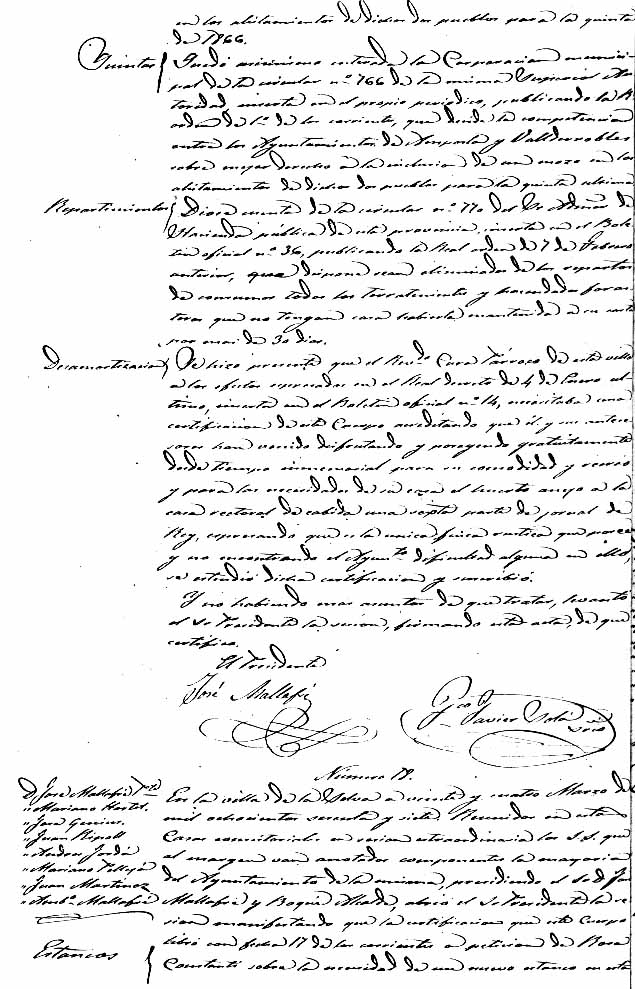 en los alistamientos de dichos dos pueblos para la quinta
de 1866.
Quintas
Quedó asimismo enterada la Corporacion munici-
pal de la circular nº 766 de la misma Superior Au-
toridad inserta en el propio periódico, publicando la R.
orden de 1º de los corrientes, que decide la competencia
entre los Ayuntamientos de y Valderrobles
sobre mejor derecho a la inclusion de un mozo en los
alistamientos de dichos dos pueblos para la quinta última
Repartimientos
Diose cuenta de la circular nº 770 del Sr. Admor. de
Hacienda pública de esta provincia, inserta en el Bole-
tin oficial nº 36, publicando la Real orden de 7 de Febrero
anterior, que dispone sean eliminados de los repartos
de consumos todos los terratenientes y hacendados foras-
teros que no tengan casa habierta mantenida a su costa
por mas de 30 dias.
Desamortizacion
Se hizo presente que el Revdo. Cura Párroco de esta villa
a los efectos espresados en el Real decreto de 4 de Enero úl-
timo, inserto en el Boletin oficial nº 14, necesitaba una
certificacion de este Cuerpo acreditando que él y sus antece-
sores han venido disfrutando y poseyendo gratuitamente
desde tiempo inmemorial para su comodidad y recreo
y para las necesidades de su casa el huerto anejo a la
casa rectoral de cabida una septa parte de jornal de
Rey, espresando que es la unica finca rustica que posee
y no encontrando el Ayunto. dificultad alguna en ello,
se estendió dicha certificacion y suscribió.
Y no habiendo mas asuntos de que tratar, levantó
el Sr. Presidente la sesion, firmando esta acta, de que
certifico.
El Presidente
José Mallafré
Fco. Javier Solá
Srio
Número 18.
D. José Mallafré Pte.
" Mariano Hortet.
" José
" Juan Ripoll
" Andres Jordá
" Mariano
" Juan Martinez
" Mallafré
En la villa de la Selva a veinte y cuatro Marzo de
mil ochocientos sesenta y siete. Reunidos en estas
Casas consistoriales en sesion estraordinaria los S.S. que
al margen van anotados componentes la mayoria
del Ayuntamiento de la misma, presidiendo el Sr. D. José
Mallafré y Roqué Alcalde, abrió el Sr. Presidente la se-
sion manifestando que la certificacion que este Cuerpo
Estancos
libró con fecha 17 de los corrientes a peticion de Rosa
Constantí sobre la necesidad de un nuevo estanco en esta